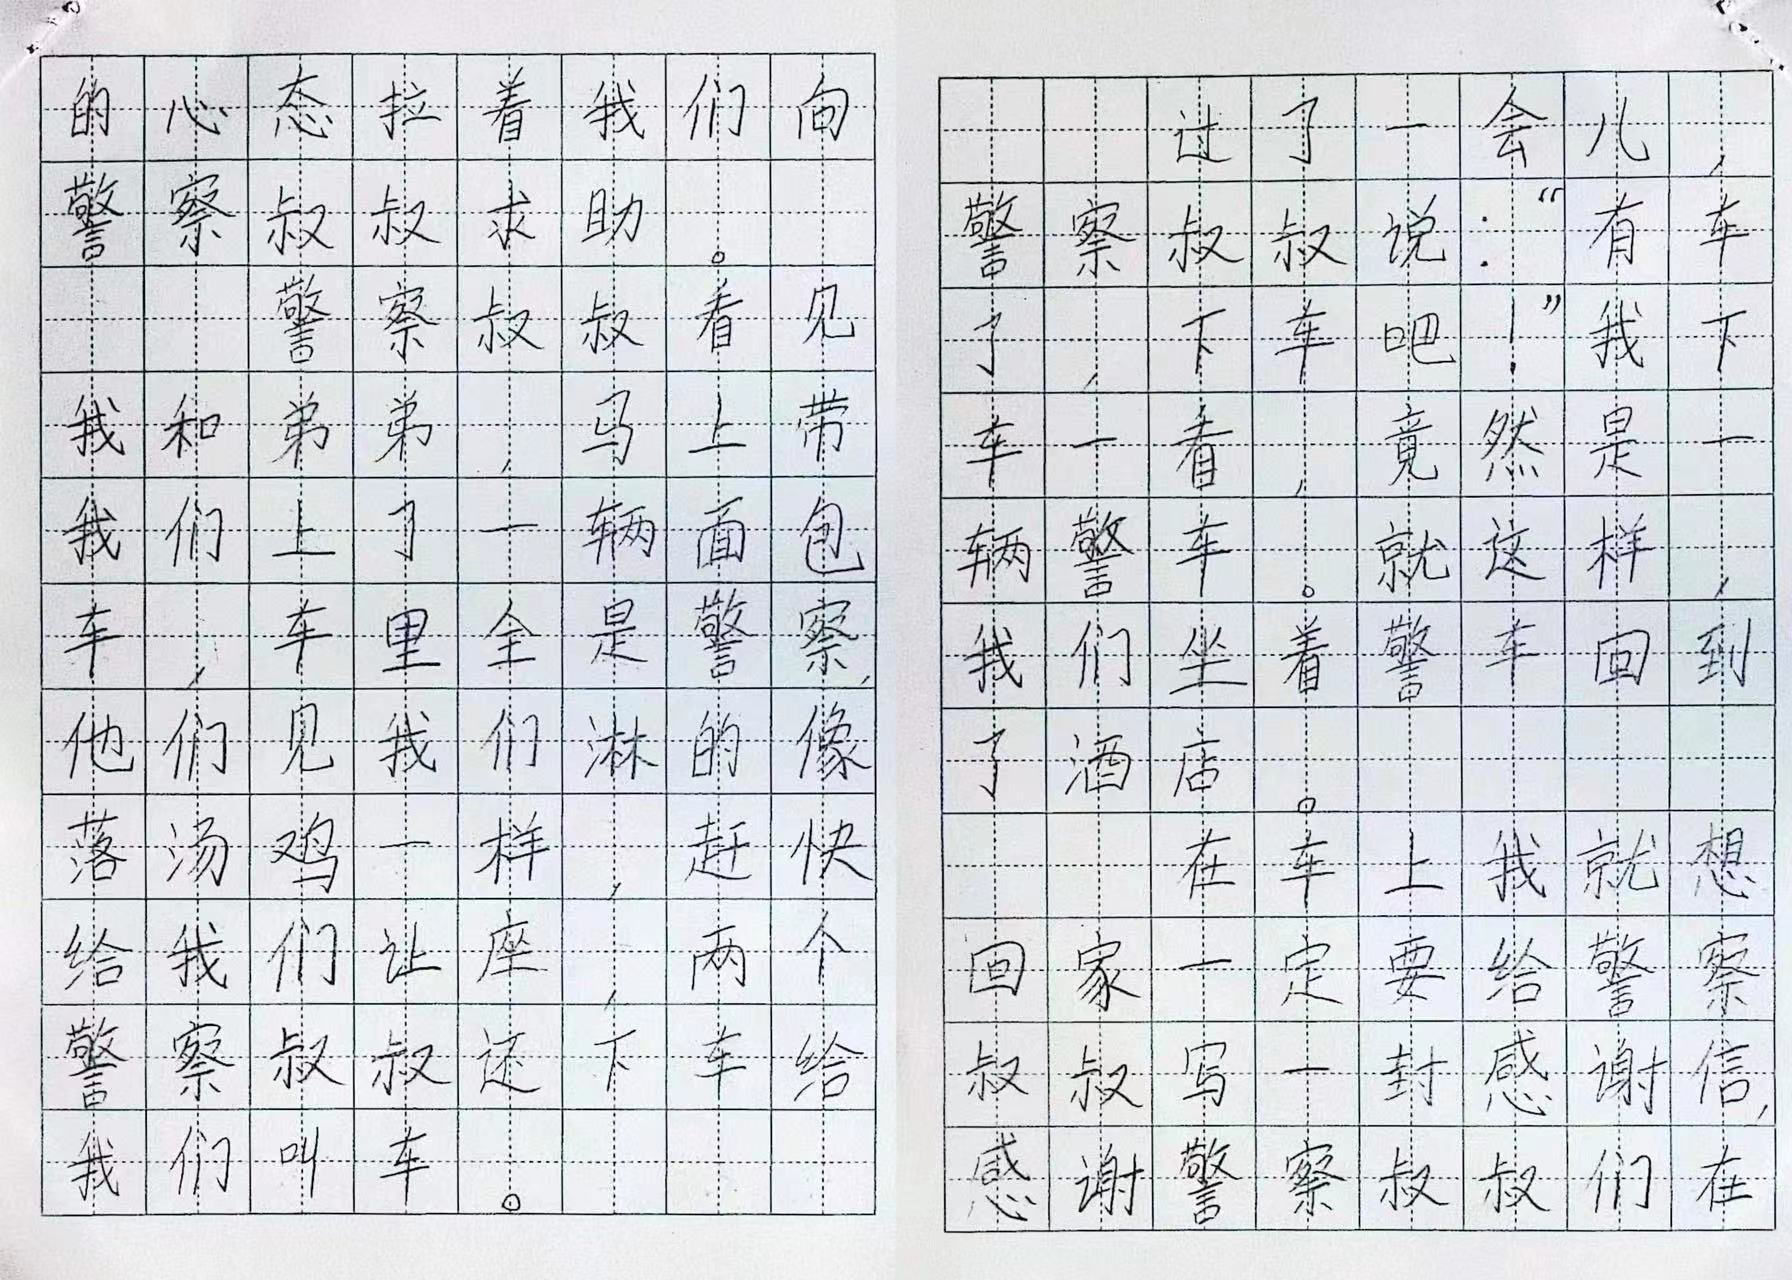 的心态拉着我们向
警察叔叔求助。
警察叔叔看见
我和弟弟，马上带
我们上了一辆面包
车，车里全是警察，
他们见我们淋的像
落汤鸡一样，赶快
给我们让座，两个
警察叔叔还下车给
我们叫车。
过了一会儿，
警察叔叔说：“有车
了，下车吧！”我下
车一看，竟然是一
辆警车。就这样，
我们坐着警车回到
了酒店。
在车上我就想
回家一定要给警察
叔叔写一封感谢信，
感谢警察叔叔们在